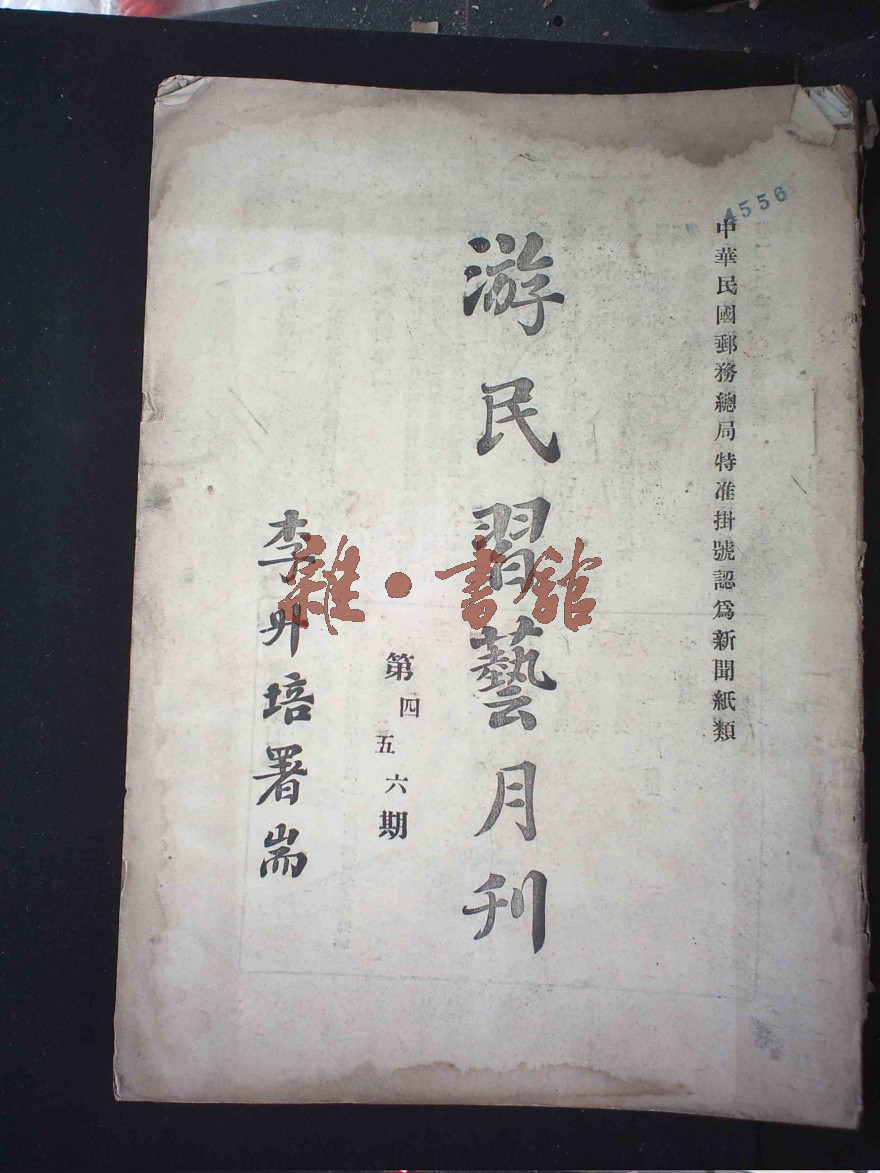 4556
中華民國郵務總局特准掛號認爲新聞紙類
游民習藝月刊
第四五六期
李升培署耑
雜·書館